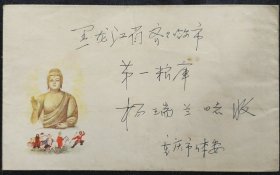 黑龙江省齐齐哈市
第一粮库
杨瑞兰 收
重庆市